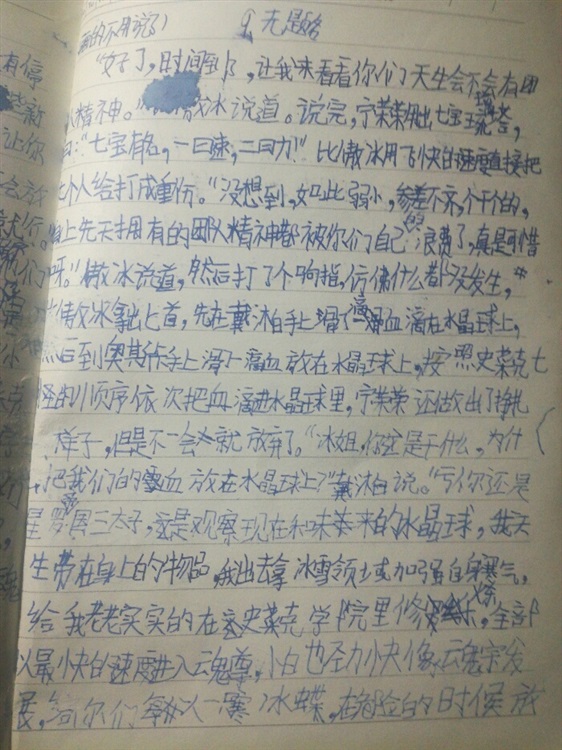 的不用说了） 9，无题
“好了，时间到，让我来看看你们天生会不会有团
精神。” 冰说道。说完，宁荣荣甩出七宝琉璃塔，
：“七宝有名，一曰速，二曰力！”比傲冰用飞快的速度直接把
七个人给打成重伤。“没想到，如此弱小，参差不齐，个个的，
上先天拥有的团队精神都被你们自己浪费了，真是可惜
呀。”傲冰说道，然后打了个响指，仿佛什么都没发生，
傲冰拿出匕首，先在戴沐白手上滑了一滴血滴在水晶球上，
后到奥斯卡手上滑一滴血放在水晶球上，按照史莱克七
怪的顺序依次把血滴进水晶球里，宁荣荣还做出了挣扎
样子，但是不一会就放弃了。“冰姐，你这是干什么，为什
把我们的血放在水晶球上？”戴沐白说。“亏你还是
星罗国三太子，这是观察现在和味来的水晶球，我天
生带在身上的物品，我出去拿冰雪领域加强自身寒气，
给我老老实实的在史莱克学院里修炼，全部
以最快的速度进入魂尊，小白也尽力快像魂宗发
展，给你们每人一 冰蝶，在 险的时候放